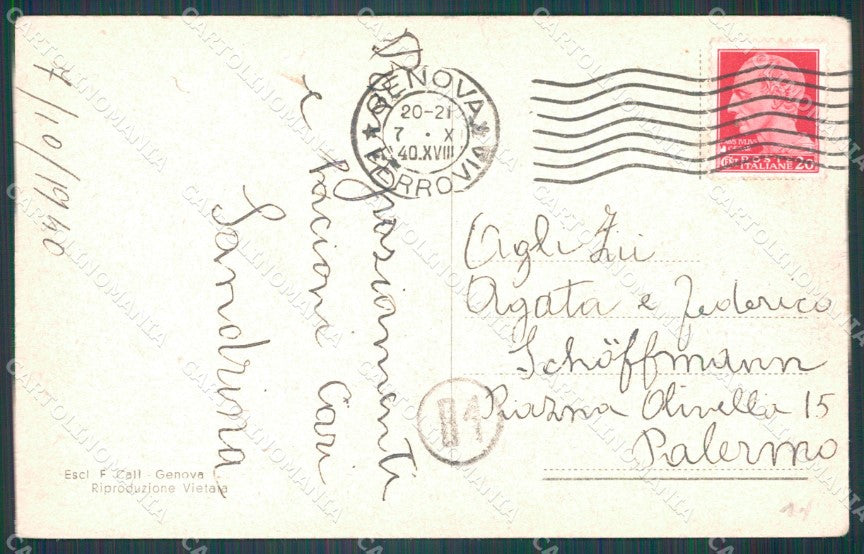 7/10/1940
Ringraziamenti
e bacioni cari
Sandrina
GENOVA
20-21
7 · X
40.XVIII
FERROVIA
POSTE
ITALIANE 20
Agli Zii
Agata e Federico
Schöffmann
Piazza Olivella 15
Palermo
Escl. F. Calì - Genova
Riproduzione Vietata
CARTOLINOMANIA